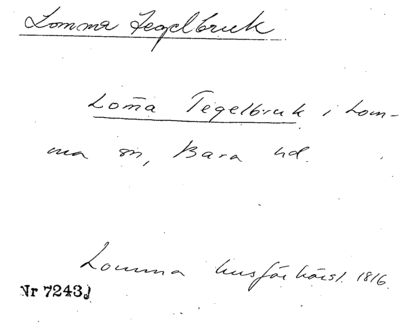 Lomma Tegelbruk
Lom̄a Tegelbruk i Lom-
ma sn, Bara hd.
Lomma husförhörsl. 1816.
Nr 7243